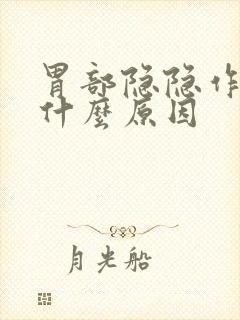 胃部隐隐作
什麼原因
月光船